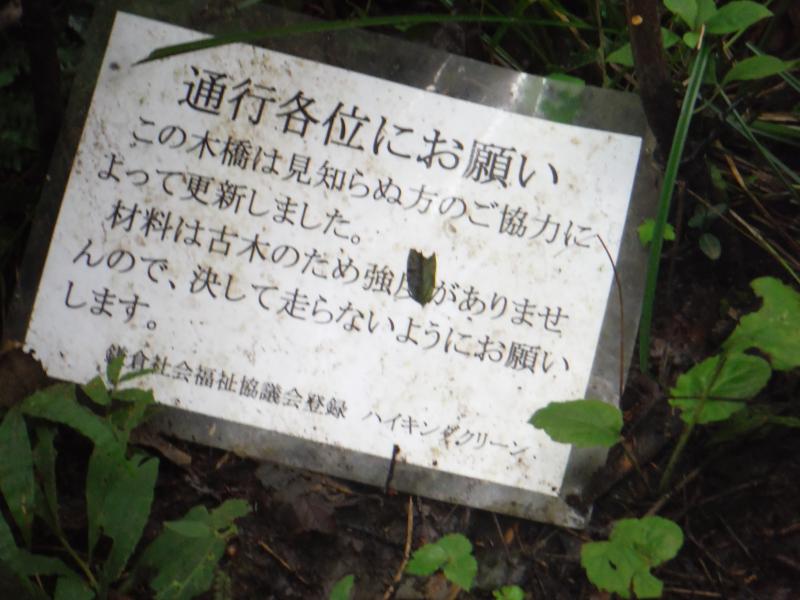 通行各位にお願い
この木橋は見知らぬ方のご協力に
よって更新しました。
材料は古木のため強度がありませ
んので、決して走らないようにお願い
します。
鎌倉社会福祉協議会登録 ハイキングクリーン